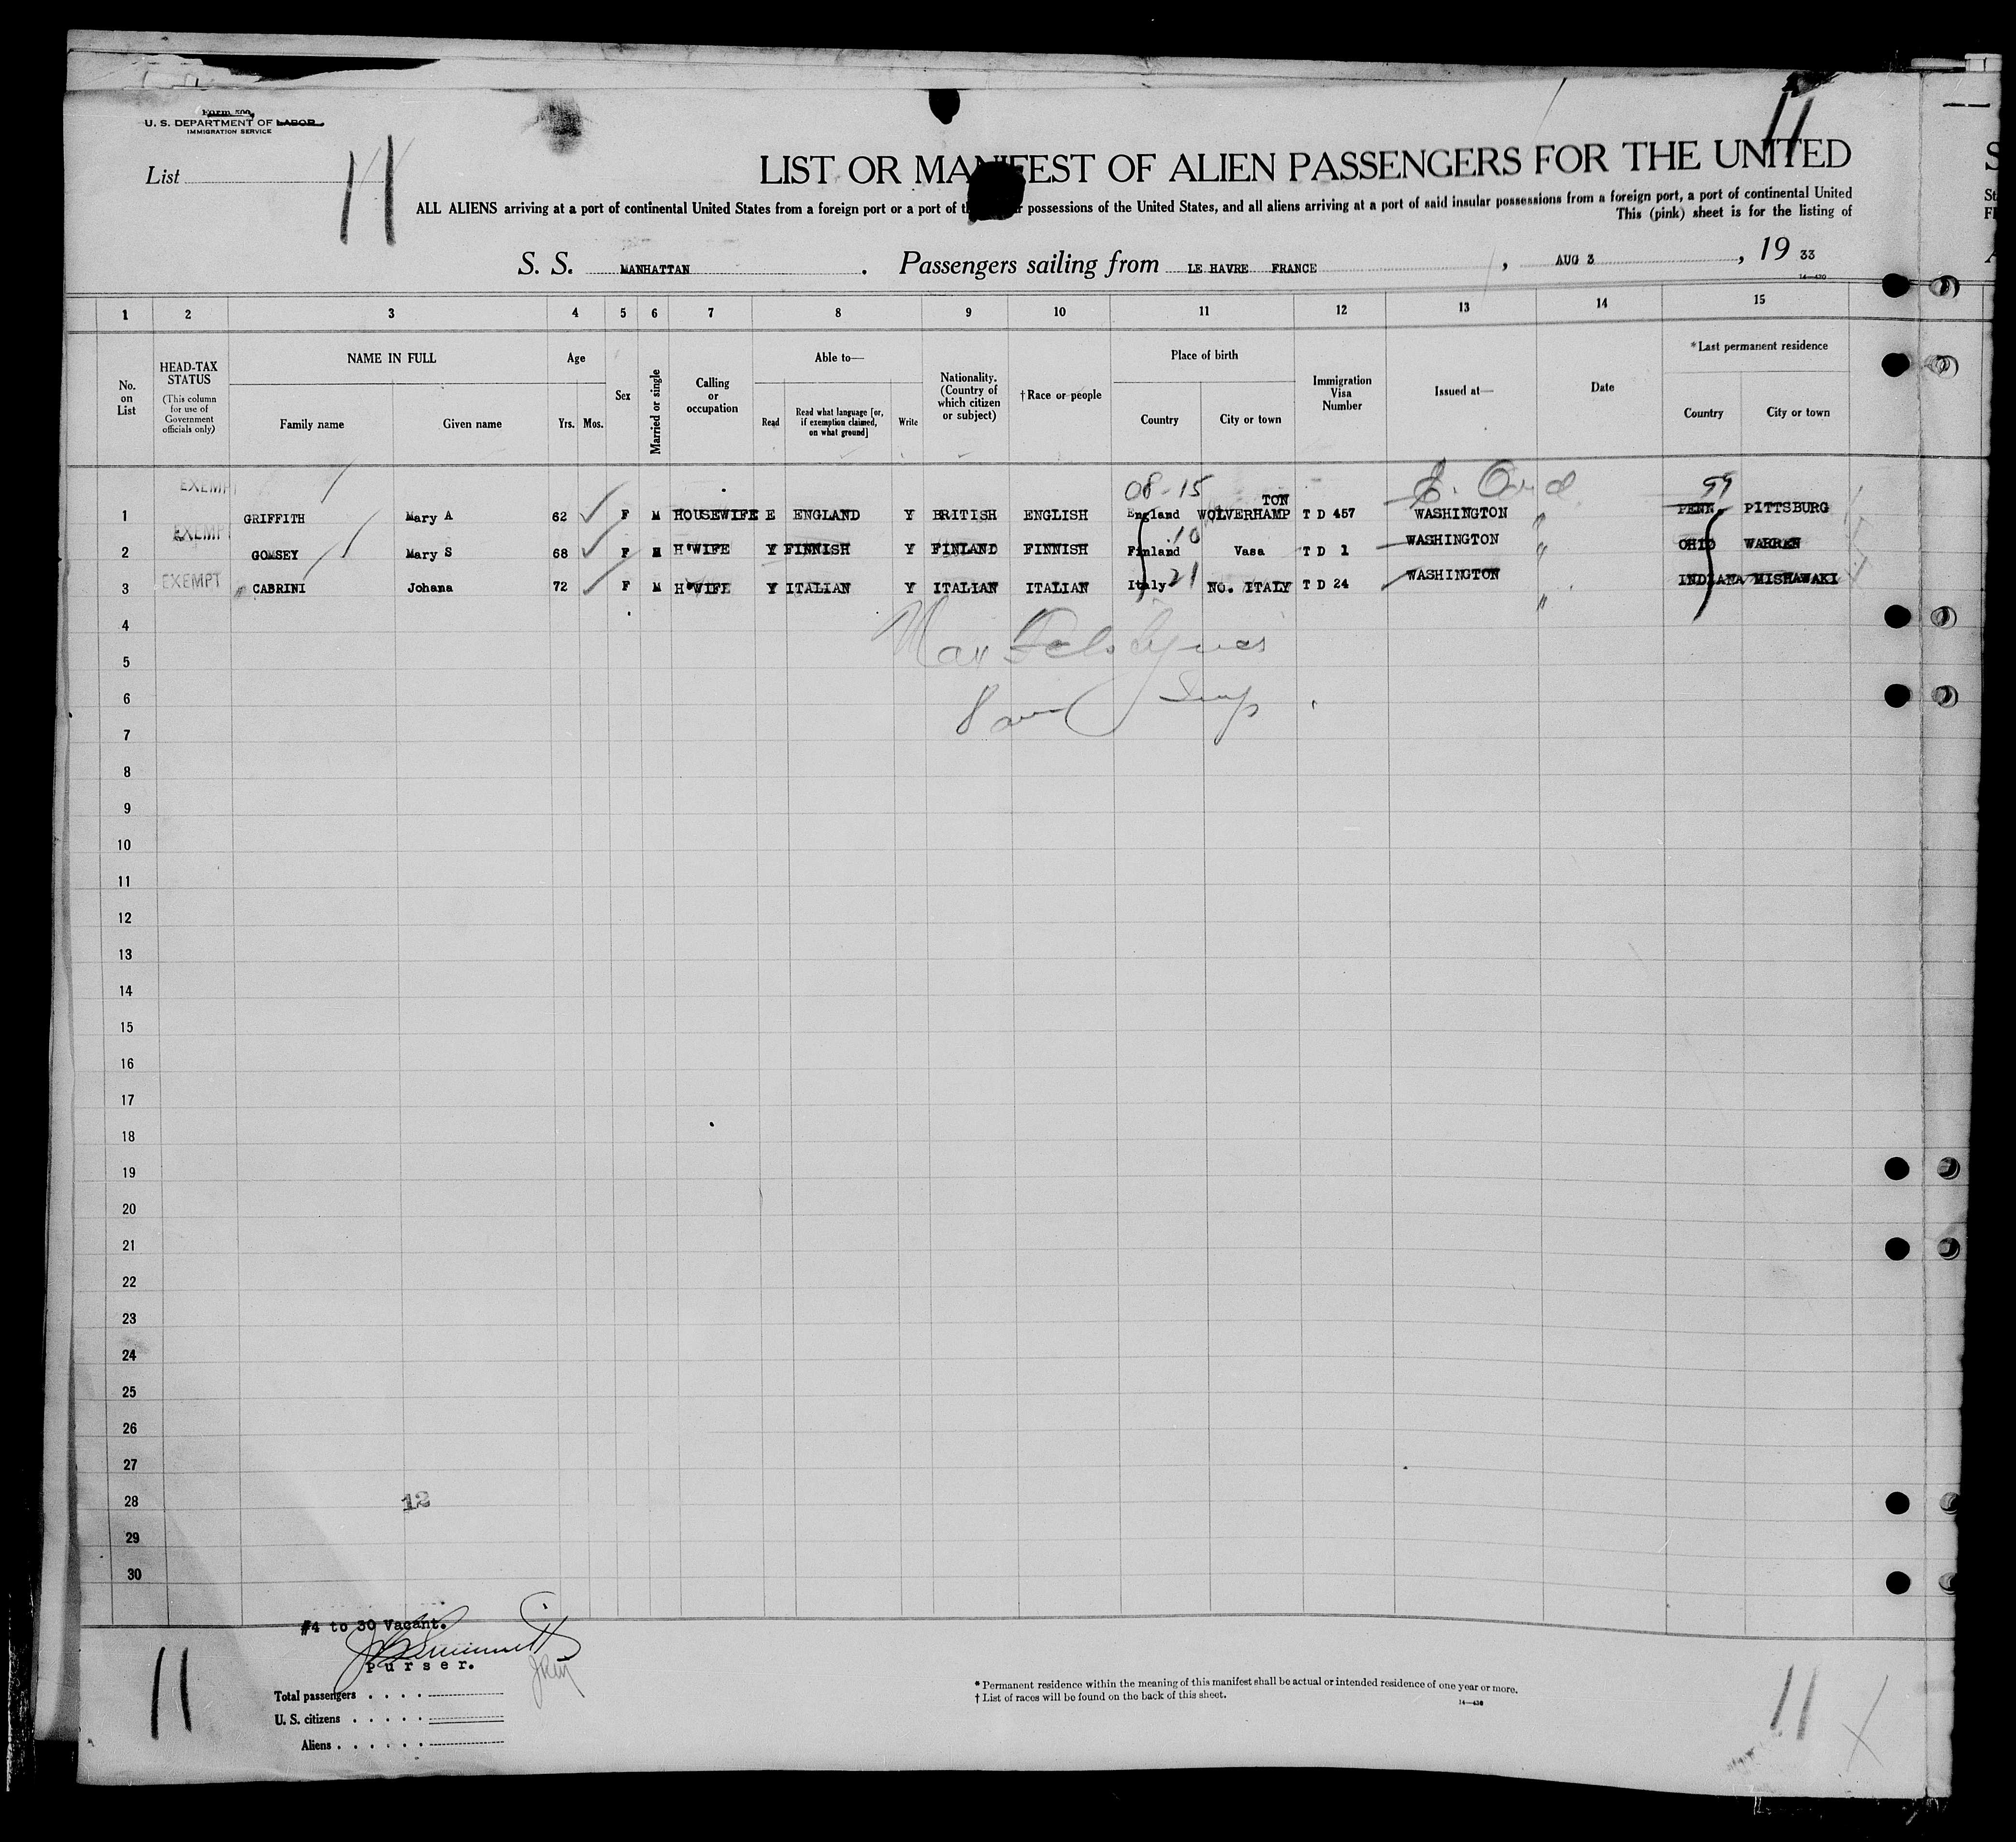 Form 500
U. S. DEPARTMENT OF LABOR
IMMIGRATION SERVICE
List 11
11
LIST OR MANIFEST OF ALIEN PASSENGERS FOR THE UNITED
ALL ALIENS arriving at a port of continental United States from a foreign port or a port of possessions of the United States, and all aliens arriving at a port of said insular possessions from a foreign port, a port of continental United
This (pink) sheet is for the listing of
S. S. MANHATTAN . Passengers sailing from LE HAVRE FRANCE , AUG 3 , 19 33
14—430
1 2 3 4 5 6 7 8 9 10 11 12 13 14 15
No. on List
HEAD-TAX STATUS
(This column for use of Government officials only)
NAME IN FULL
Family name
Given name
Age
Yrs. Mos.
Sex
Married or single
Calling or occupation
Able to—
Read
Read what language [or, if exemption claimed, on what ground]
Write
Nationality. (Country of which citizen or subject)
†Race or people
Place of birth
Country
City or town
Immigration Visa Number
Issued at—
Date
*Last permanent residence
Country
City or town
08-15
99
1 EXEMPT GRIFFITH Mary A 62 F M HOUSEWIFE E ENGLAND Y BRITISH ENGLISH England WOLVERHAMPTON T D 457 WASHINGTON " PENN PITTSBURG
2 EXEMPT GOMSEY Mary S 68 F M H'WIFE Y FINNISH Y FINLAND FINNISH Finland 10 Vasa T D 1 WASHINGTON " OHIO WARREN
3 EXEMPT CABRINI Johana 72 F M H'WIFE Y ITALIAN Y ITALIAN ITALIAN Italy 21 NO. ITALY T D 24 WASHINGTON " INDIANA MISHAWAKI
4
5
6
7
8
9
10
11
12
13
14
15
16
17
18
19
20
21
22
23
24
25
26
27
28 12
29
30
#4 to 30 Vacant.
Purser.
11
Total passengers
U. S. citizens
Aliens
* Permanent residence within the meaning of this manifest shall be actual or intended residence of one year or more.
† List of races will be found on the back of this sheet.
14—430
11